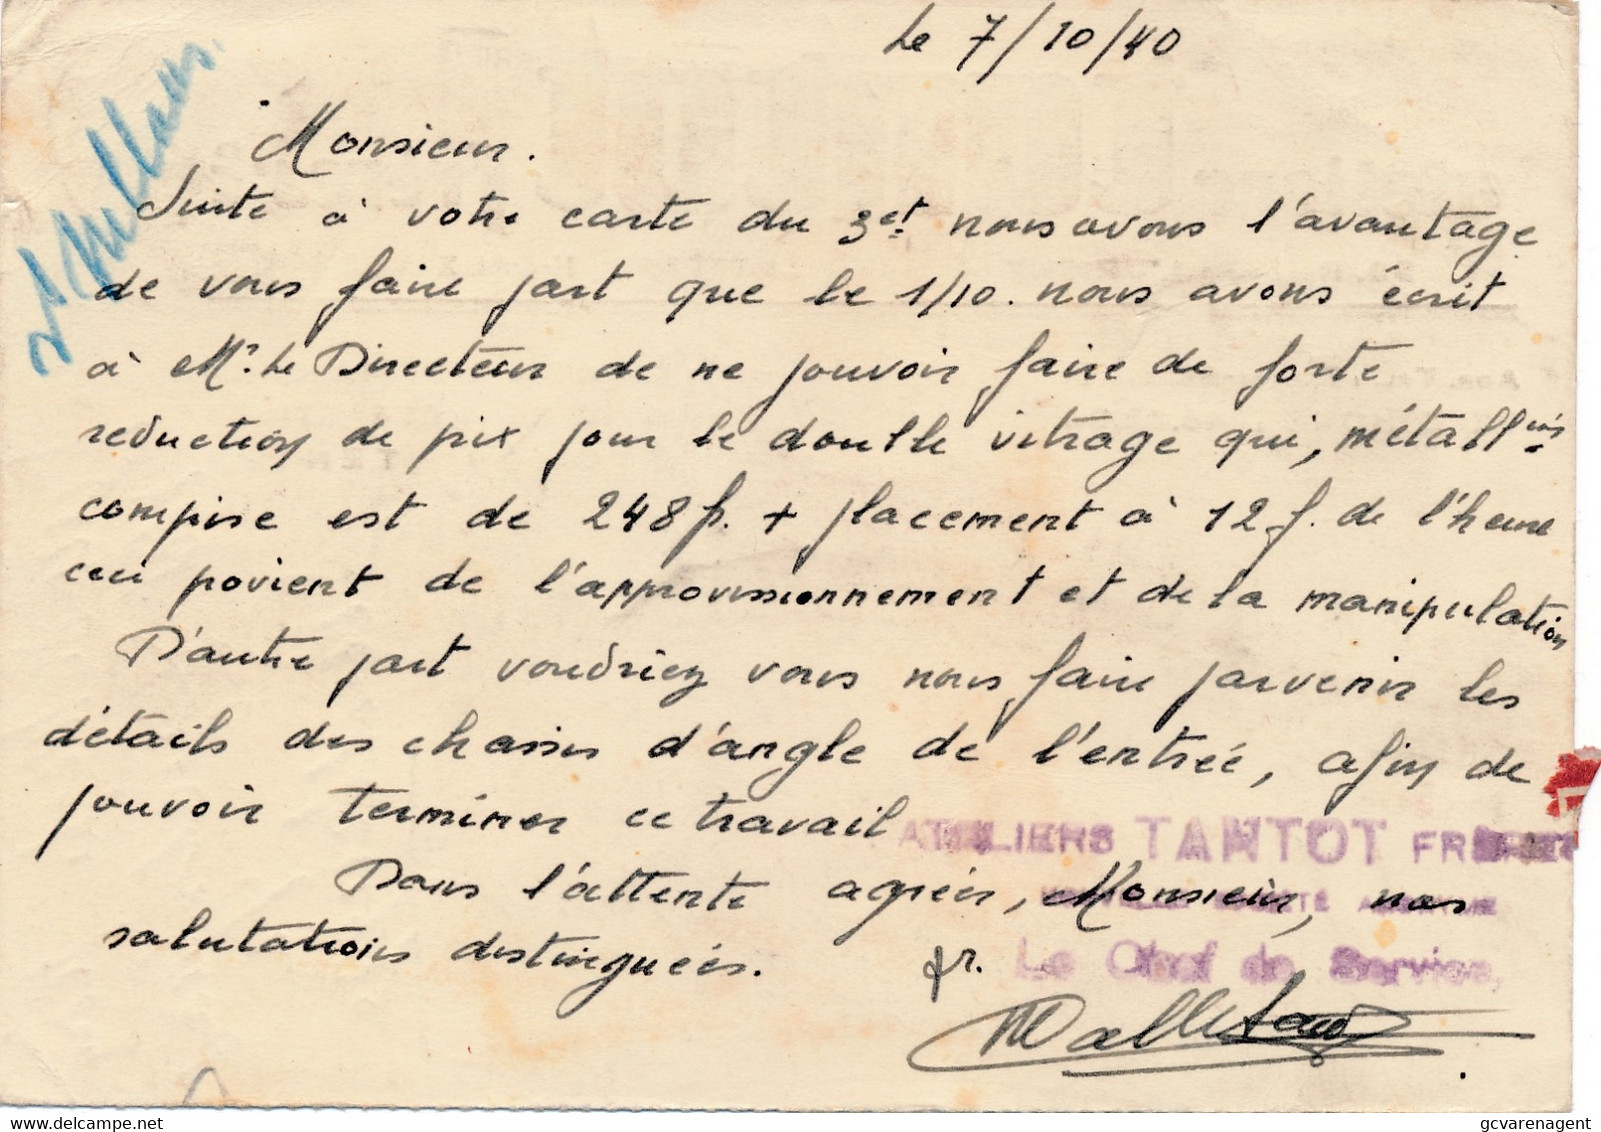 le 7/10/40
Monsieur.
Suite à votre carte du 3 ct nous avons l'avantage
de vous faire part que le 1/10. nous avons écrit
à Mr. le Directeur de ne pouvoir faire de forte
reduction de prix pour le double vitrage qui, métall
comprise est de 248 fr. + placement à 12 f. de l'heure
ceci provient de l'approvissionnement et de la manipulation
D'autre part voudriez vous nous faire parvenir les
détails des chassis d'angle de l'entrée, afin de
pouvoir terminer ce travail
ATELIERS TANTOT FRERES
Dans l'attente agréer, Monsieur, nos
SOCIÉTÉ ANONYME
salutations distinguées. pr. Le Chef de Service,
gcvarenagent